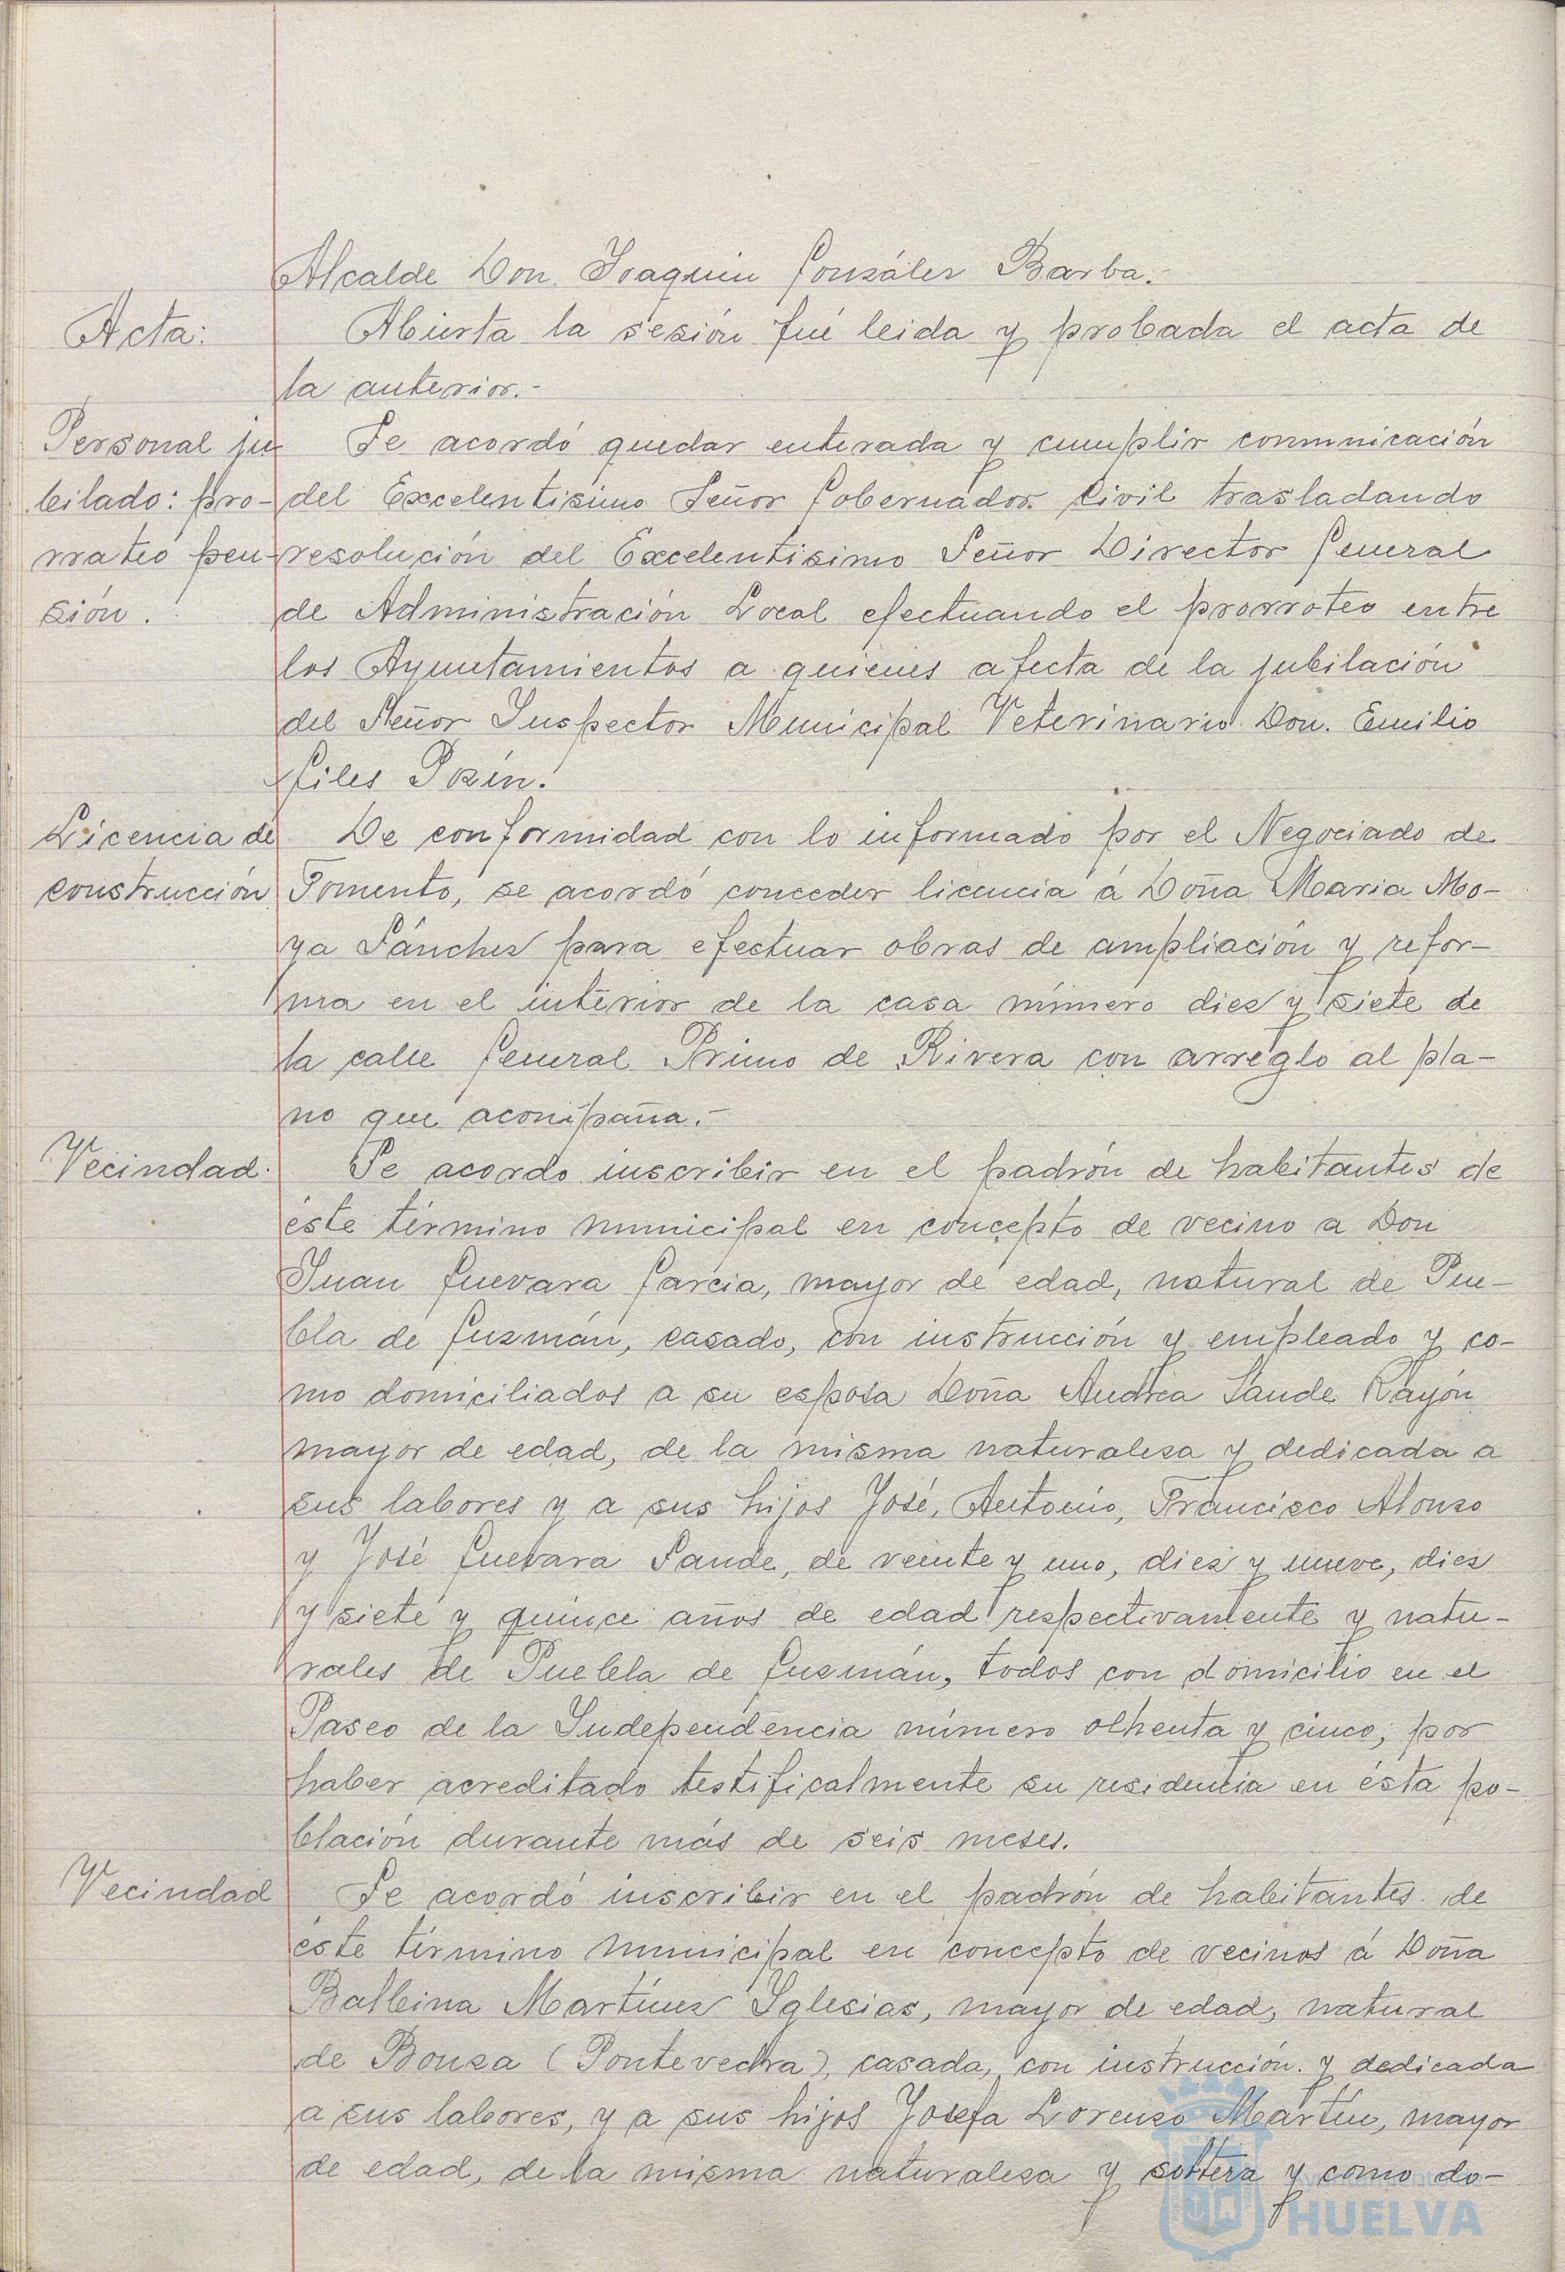 Alcalde Don Joaquin González Barba.-
Acta:
Abierta la sesión fué leida y probada el acta de
la anterior.-
Personal ju
bilado: pro-
rrateo pen-
sión.
Se acordó quedar enterada y cumplir comunicación
del Excelentisimo Señor Gobernador Civil trasladando
resolución del Excelentisimo Señor Director General
de Administración Local efectuando el prorroteo entre
los Ayuntamientos a quienes afecta de la jubilación
del Señor Inspector Municipal Veterinario Don Emilio
Giles
Licencia de
construcción
De conformidad con lo informado por el Negociado de
Fomento, se acordó conceder licencia á Doña Maria Mo-
ya Sánchez para efectuar obras de ampliación y refor-
ma en el interior de la casa número diez y siete de
la calle General Primo de Rivera con arreglo al pla-
no que acompaña.-
Vecindad.
Se acordo inscribir en el padrón de habitantes de
éste término municipal en concepto de vecino a Don
Juan Guevara Garcia, mayor de edad, natural de Pue-
bla de Guzmán, casado, con instrucción y empleado y co-
mo domiciliados a su esposa Doña Andrea Sande Rayón
mayor de edad, de la misma naturaleza y dedicada a
sus labores y a sus hijos José, Antonio, Francisco Alonso
y José Guevara Sande, de veinte y uno, diez y nueve, diez
y siete y quince años de edad respectivamente y natu-
rales de Puebla de Guzmán, todos con domicilio en el
Paseo de la Independencia número ochenta y cinco, por
haber acreditado testificalmente su residencia en ésta po-
blación durante más de seis meses.
Vecindad
Se acordó inscribir en el padrón de habitantes de
éste término municipal en concepto de vecinos á Doña
Balbina Martínez Iglesias, mayor de edad, natural
de Bouza (Pontevedra), casada, con instrucción y dedicada
a sus labores, y a sus hijos Josefa Lorenzo Martín, mayor
de edad, de la misma naturaleza y soltera y como do-
Ayuntamiento de
HUELVA